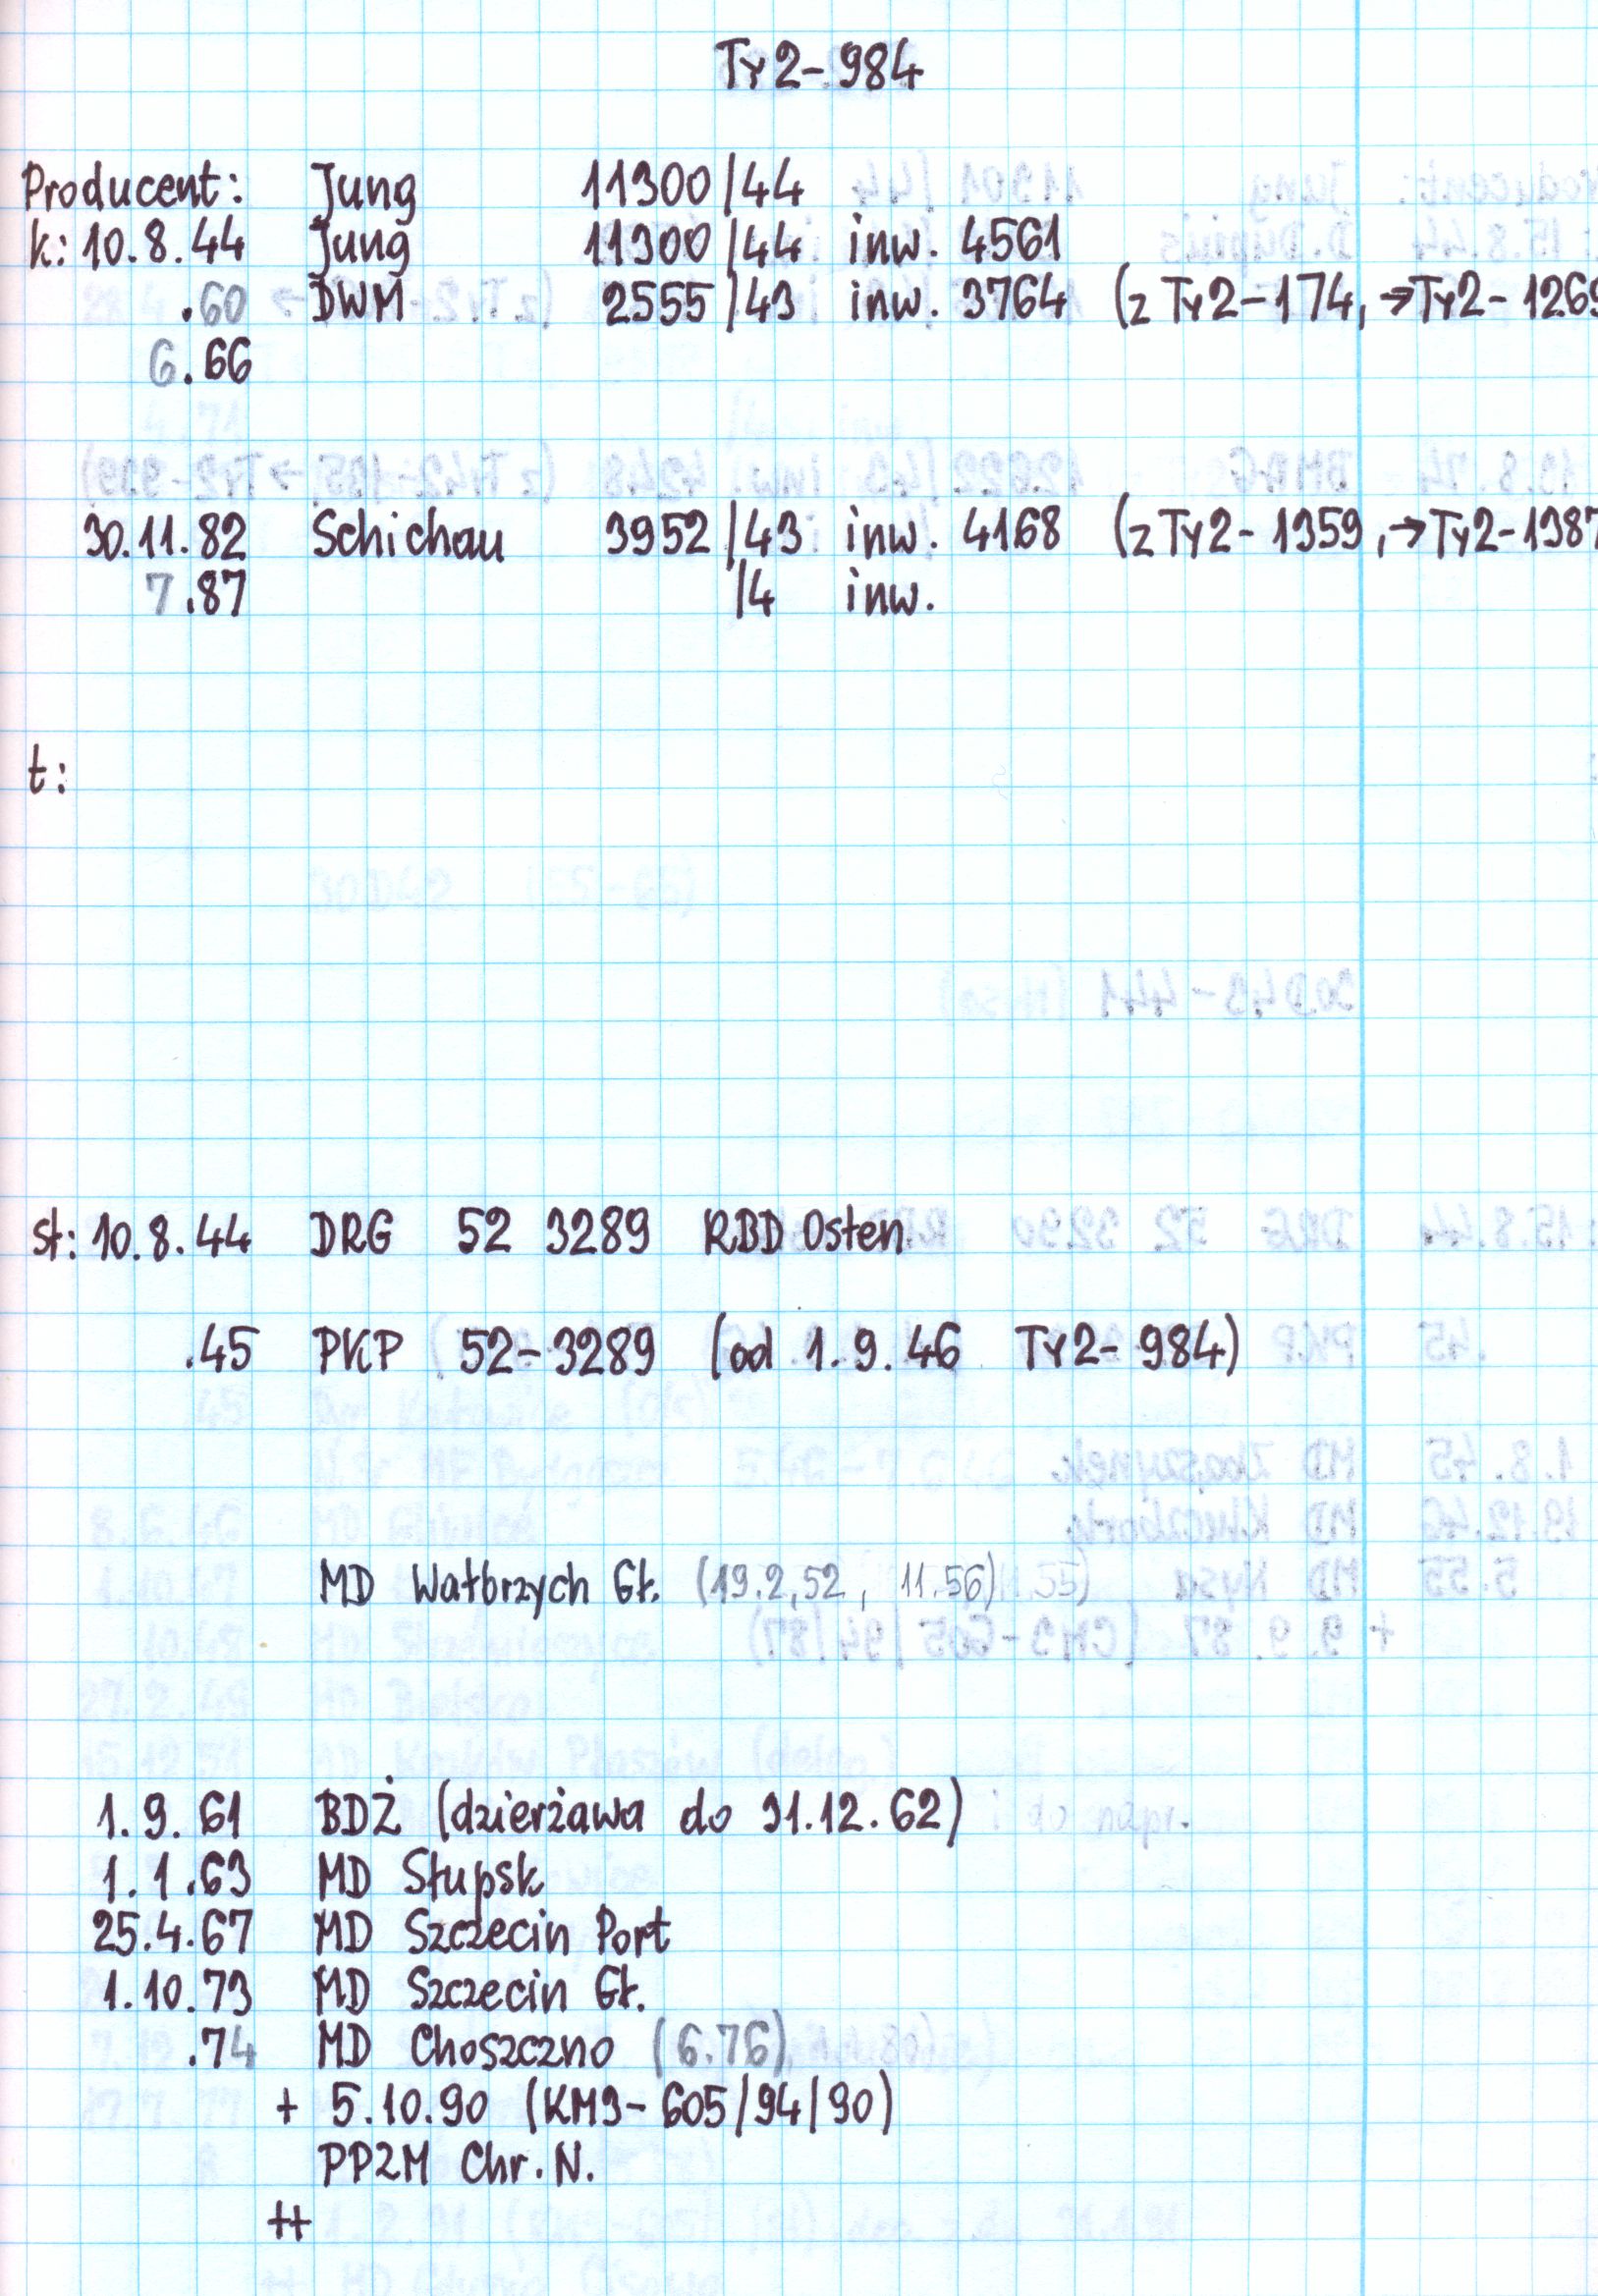 Ty2-984
Producent: Jung 11300/44
k: 10.8.44 Jung 11300/44 inw. 4561
.60 DWM 2555/43 inw. 3764 (z Ty2-174, →Ty2-1269
6.66
30.11.82 Schichau 3952/43 inw. 4168 (z Ty2-1359, →Ty2-1387
7.87 /4 inw.
t:
st: 10.8.44 DRG 52 3289 RBD Osten
.45 PKP 52-3289 (od 1.9.46 Ty2-984)
MD Wałbrzych Gł. (19.2.52, 11.56)
1.9.61 BDŻ (dzierżawa do 31.12.62)
1.1.63 MD Słupsk
25.4.67 MD Szczecin Port
1.10.73 MD Szczecin Gł.
.74 MD Choszczno (6.76)
+ 5.10.90 (KM3-605/94/90)
PPZM Chr. N.
++